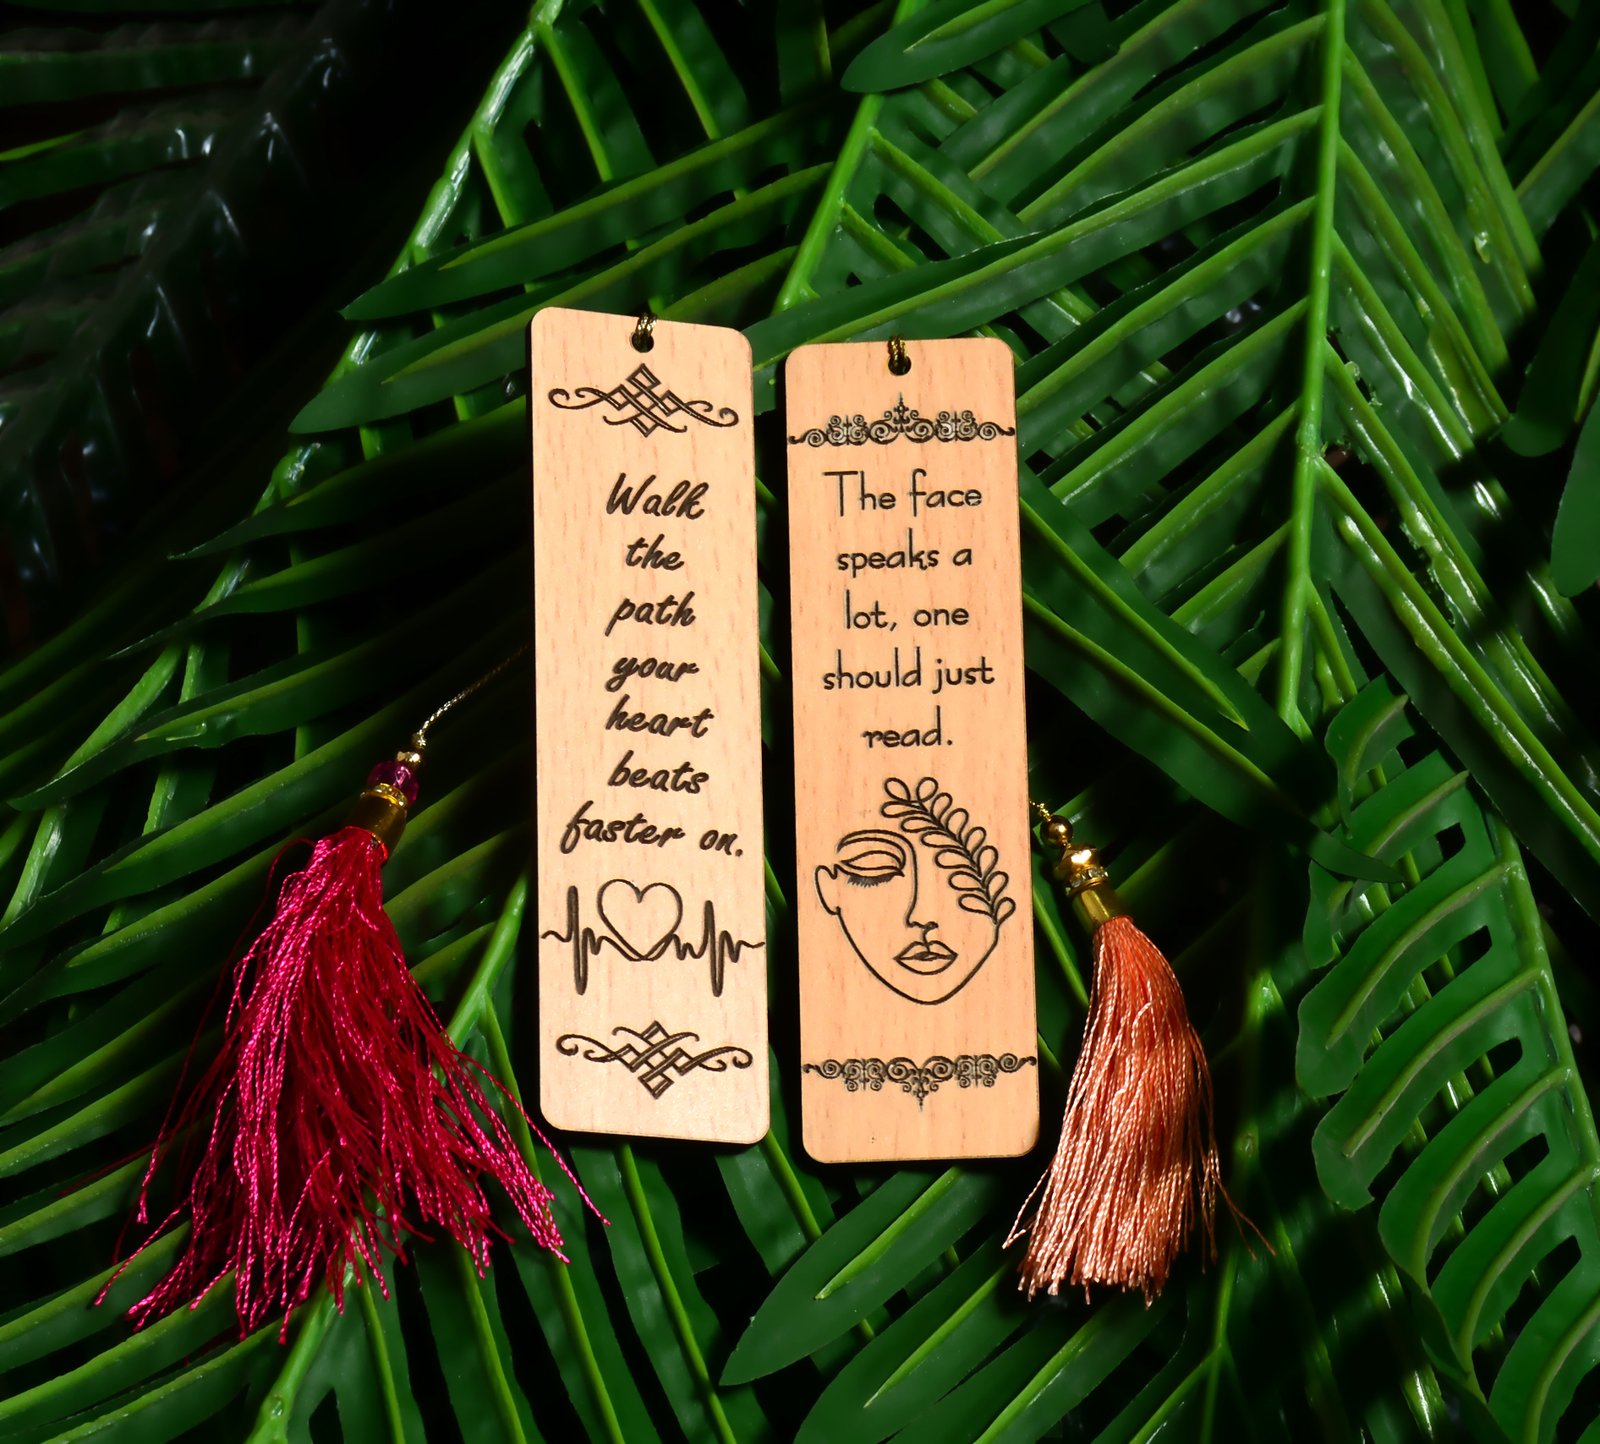 Walk
the
path
your
heart
beats
faster on.
The face
speaks a
lot, one
should just
read.